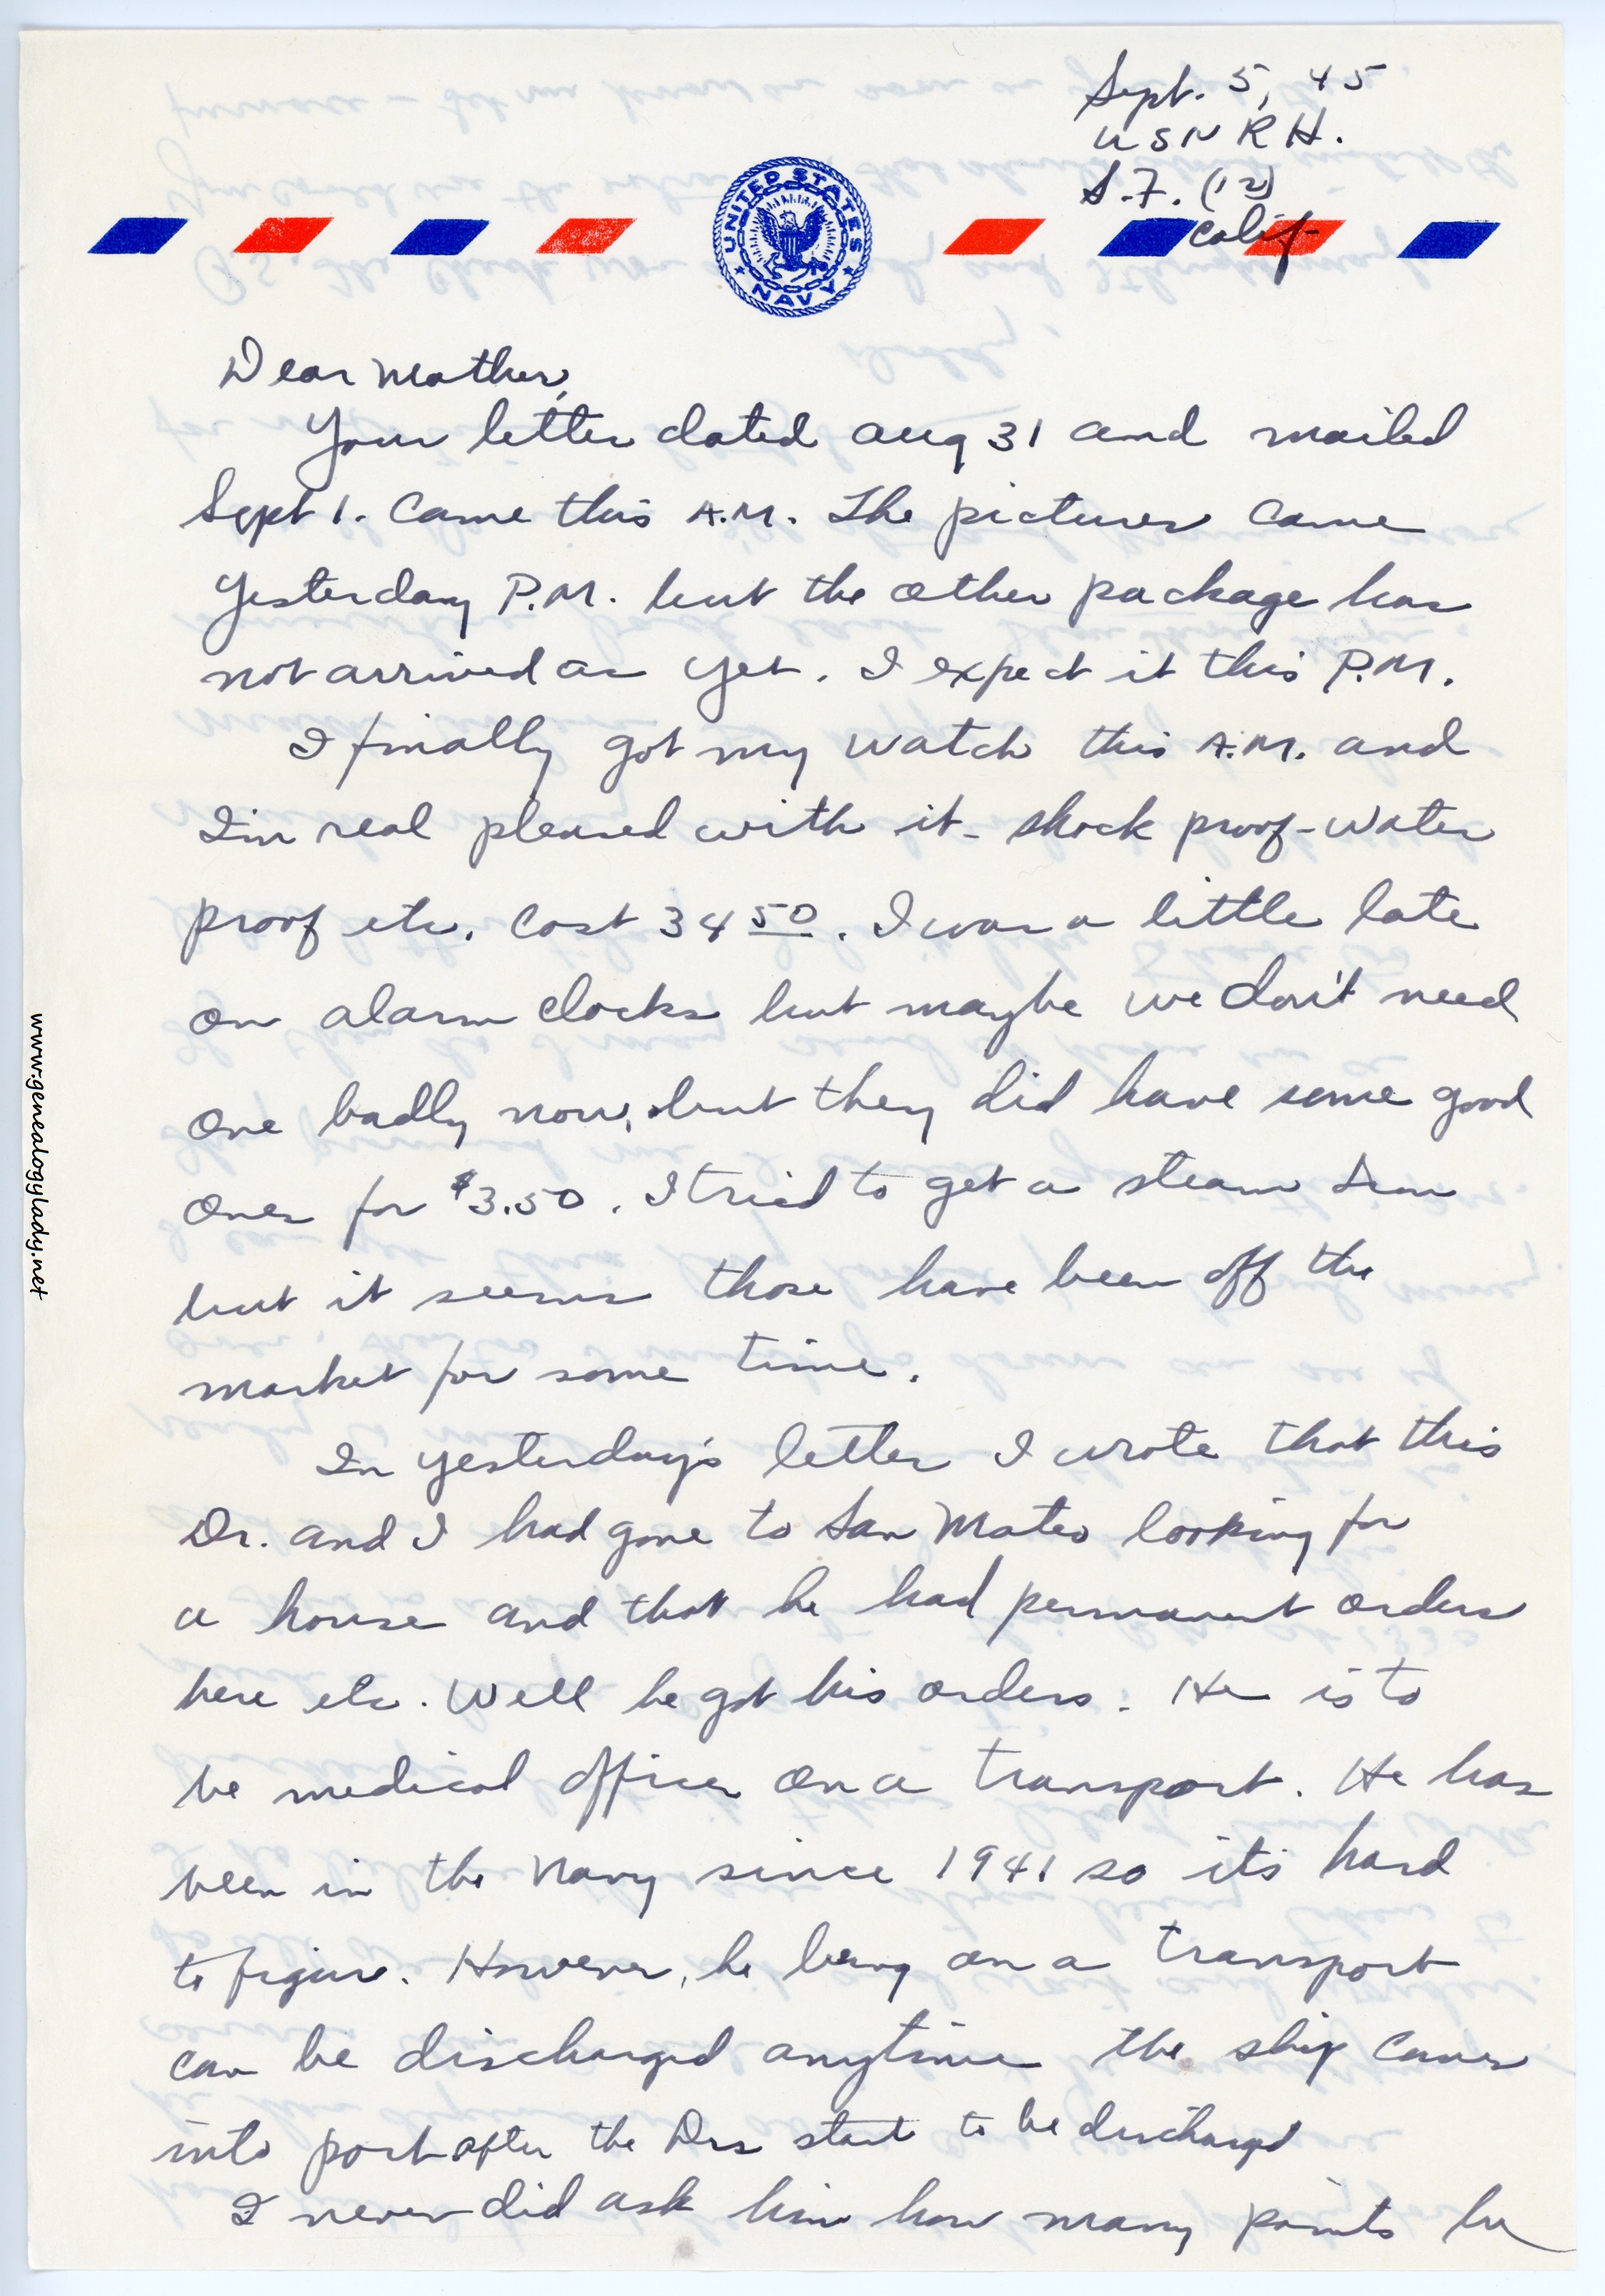 Sept. 5, 45
USNRH.
S.F. (12)
Calif
UNITED STATES NAVY
Dear Mother,
Your letter dated Aug 31 and mailed
Sept 1. Came this A.M. The pictures came
yesterday P.M. but the other package has
not arrived as yet. I expect it this P.M.
I finally got my watch this A.M. and
I'm real pleased with it - shock proof - water
proof etc. Cost 34 50. I was a little late
on alarm clocks but maybe we don't need
one badly now, but they did have some good
ones for $3.50. I tried to get a steam iron
but it seems those have been off the
market for some time.
In yesterday's letter I wrote that this
Dr. and I had gone to San Mateo looking for
a house and that he had permanent orders
here etc. Well he got his orders. He is to
be medical officer on a transport. He has
been in the Navy since 1941 so its hard
to figure. However, he being on a transport
can be discharged anytime the ship comes
into port after the Drs start to be discharged
I never did ask him how many points he
www.genealogylady.net